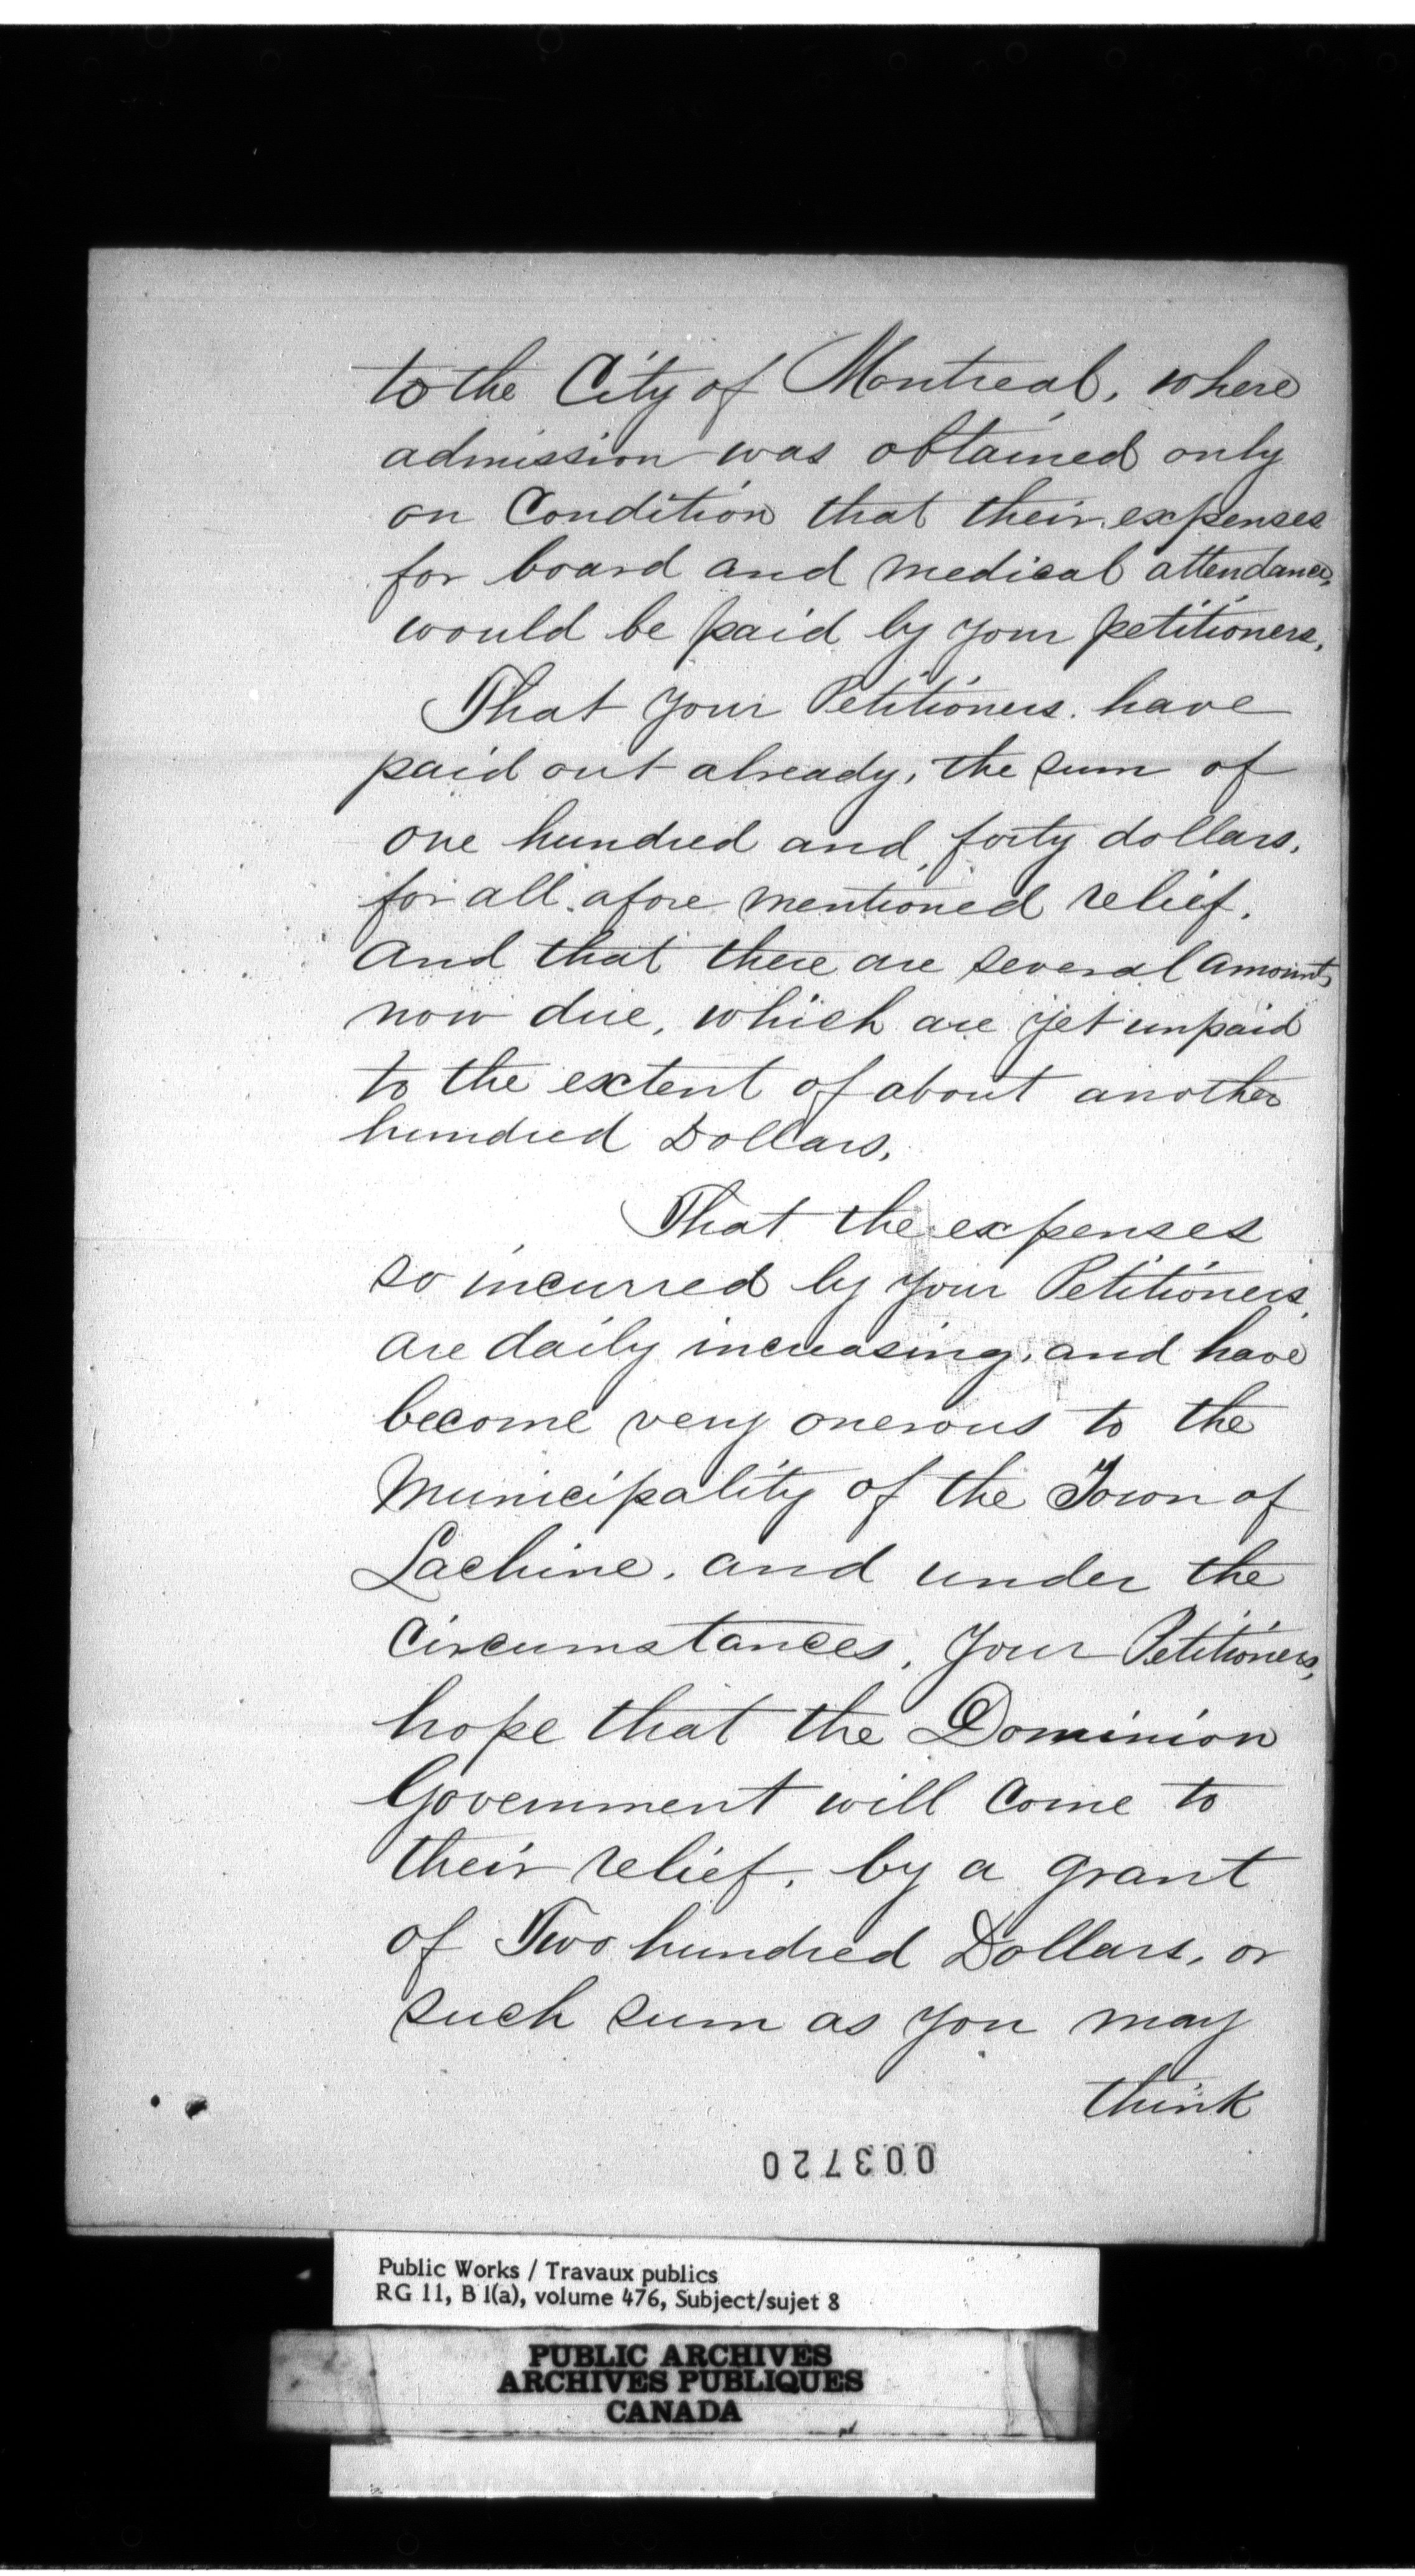 to the City of Montreal, where
admission was obtained only
on Condition that their expenses
for board and medical attendance,
would be paid by your petitioners,
That your Petitioners have
paid out already, the sum of
one hundred and forty dollars,
for all afore mentioned relief,
and that there are several amounts
now due, which are yet unpaid
to the extent of about another
hundred Dollars,
That the expenses
so incurred by your Petitioners,
are daily increasing, and have
become very onerous to the
Municipality of the Town of
Lachine, and under the
circumstances, your Petitioners,
hope that the Dominion
Government will come to
their relief, by a grant
of Two hundred Dollars, or
such sum as you may
think
003720
Public Works / Travaux publics
RG 11, B 1(a), volume 476, Subject/sujet 8
PUBLIC ARCHIVES
ARCHIVES PUBLIQUES
CANADA